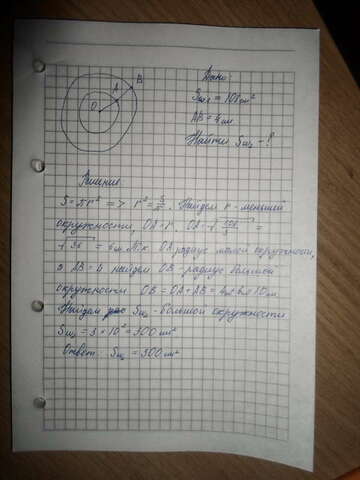 B
A
O
Дано:
Sш₁ = 108 см²
AB = 4 см
Найти Sш₂ - ?
Решение
S = πr² => r² = S/π. Найдем r - меньшей
окружности, OA = r. OA = √108/3 =
√36 = 6 см. Т.к. OA радиус малой окружности,
а AB = 4 найдем OB - радиус большой
окружности. OB = OA + AB = 10 см
Найдем Sш₂ - большой окружности
Sш₂ = 3 × 10² = 300 см²
Ответ: Sш₂ = 300 см²